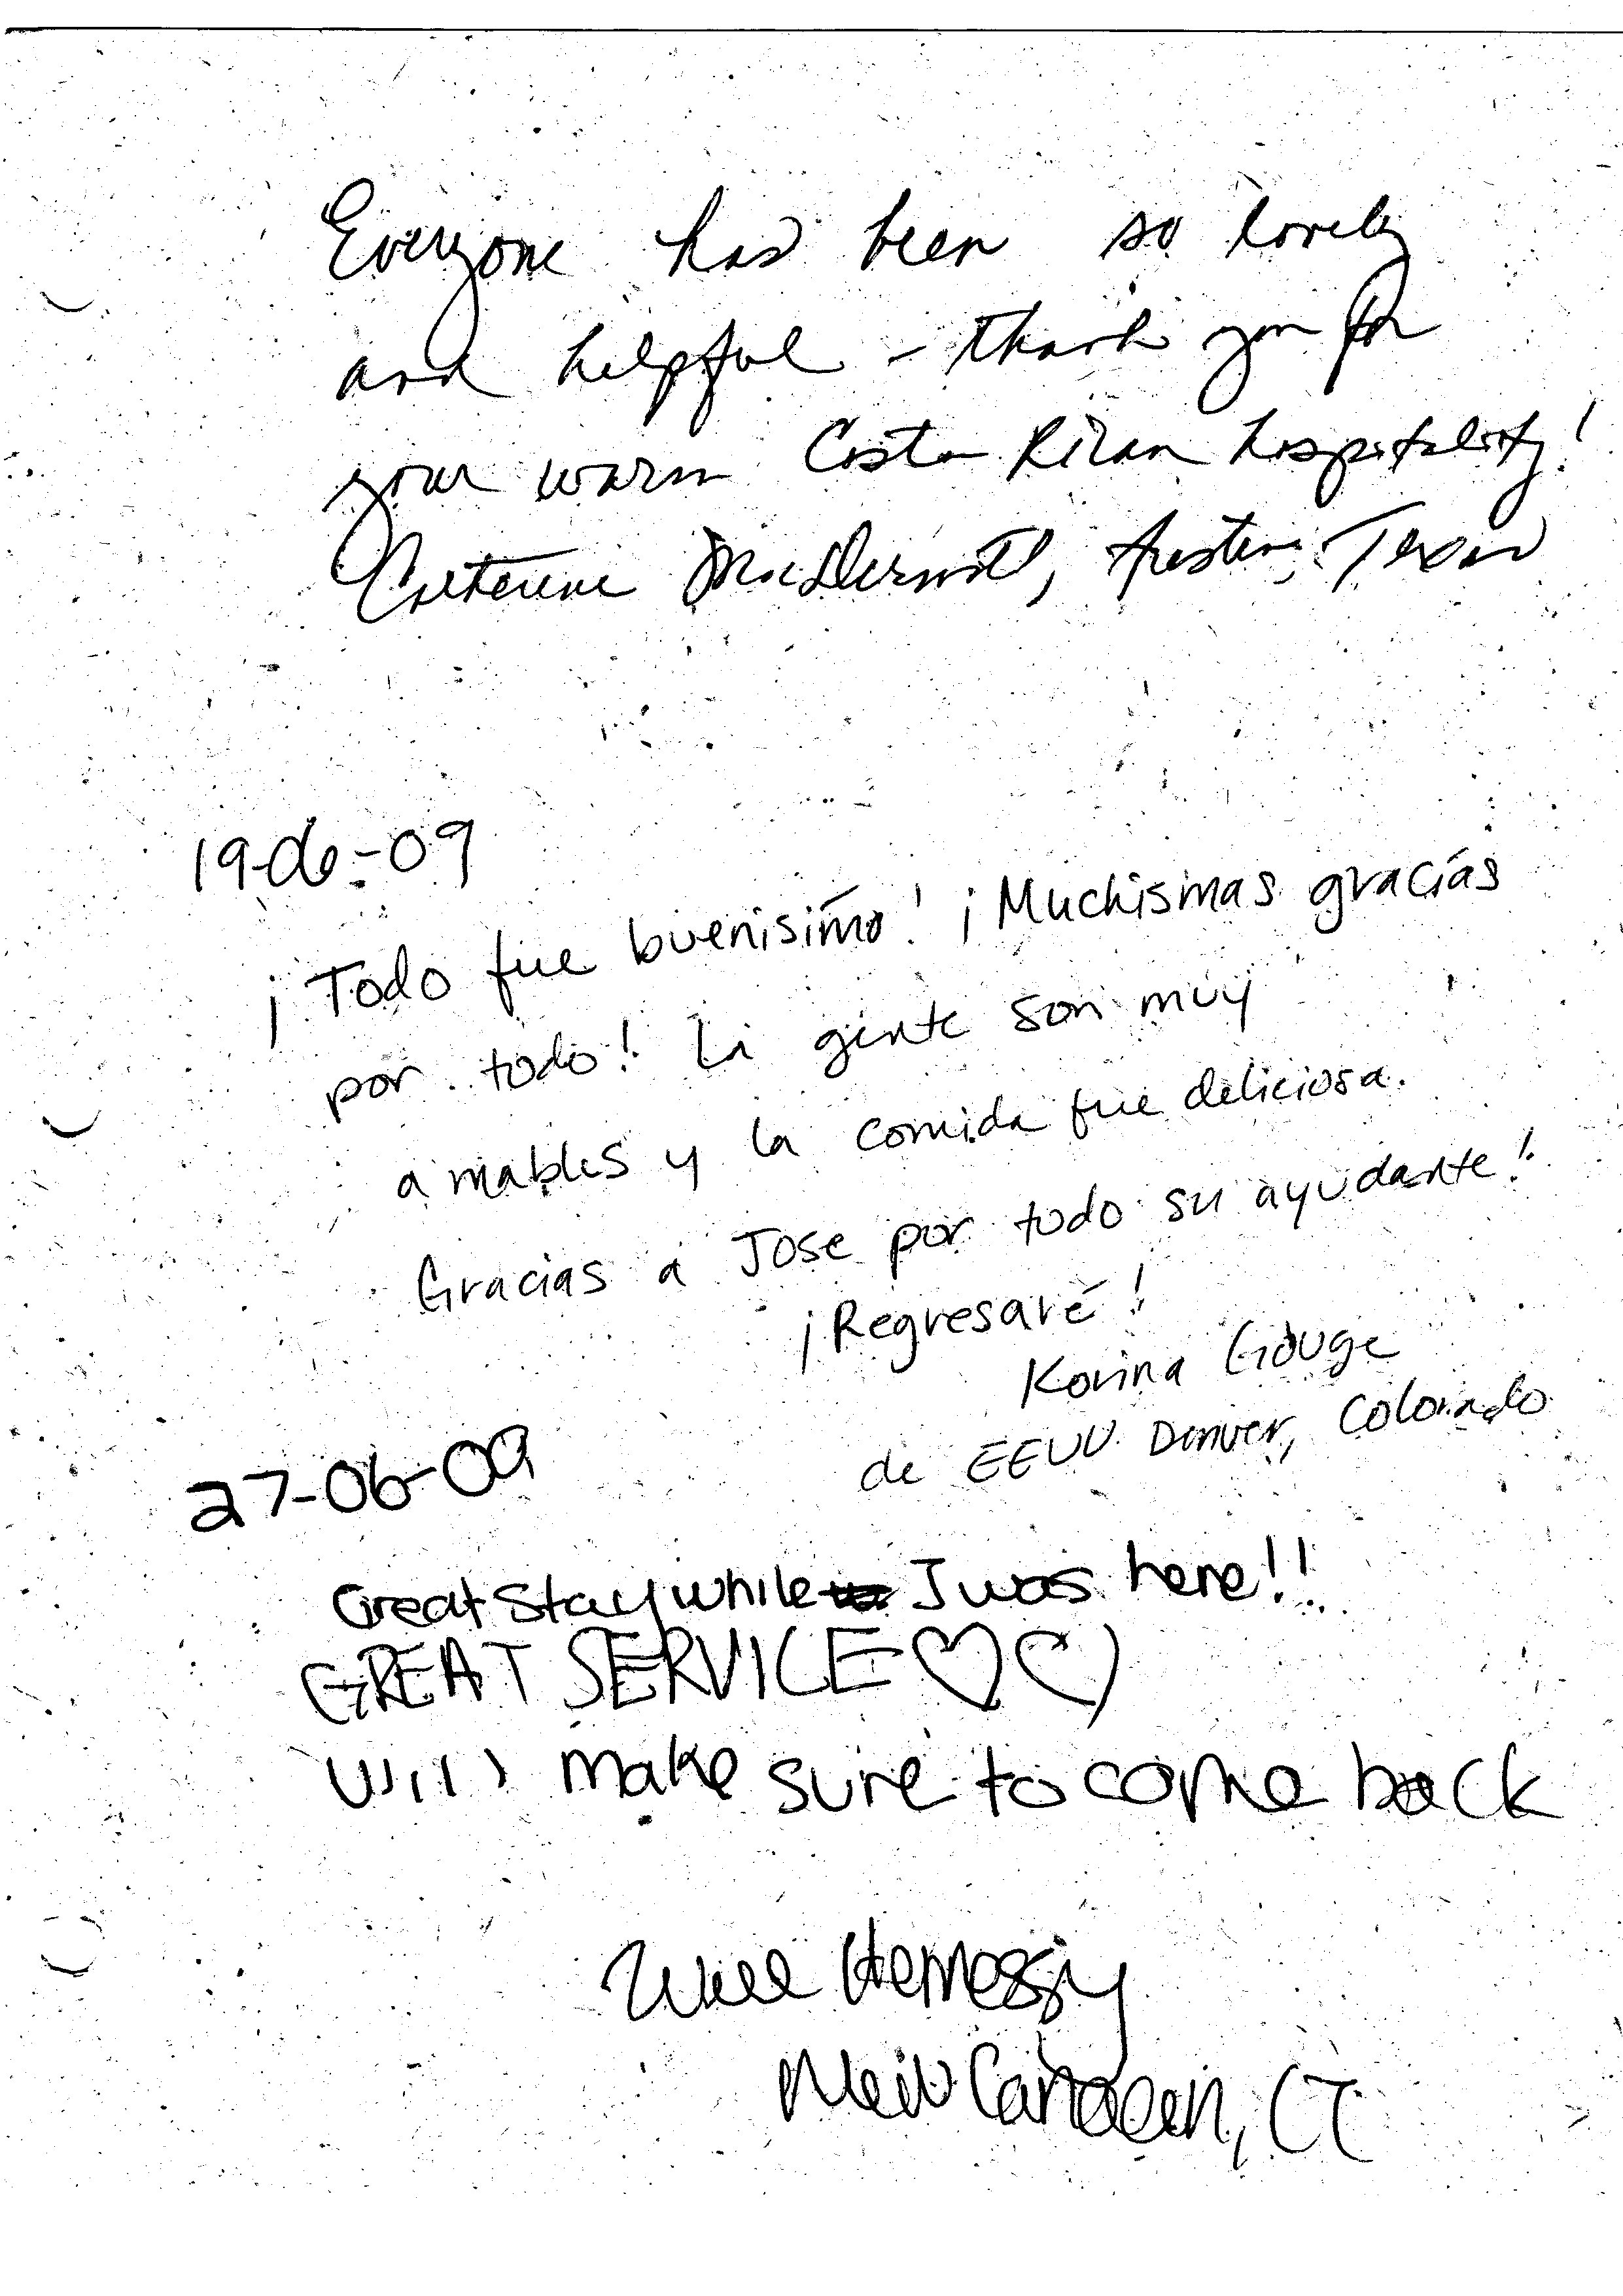 Everyone has been so lovely
and helpful - thank you for
your warm Costa Rican hospitality!
Catherine MacDermott, Austin, Texas
19-06-09
¡Todo fue buenisímo! ¡Muchismas gracías
por todo! La gente son muy
amables y la comida fue deliciosa.
Gracias a Jose por todo su ayudante!
¡Regresaré!
Korina Gouge
de EEUU Denver, Colorado
27-06-09
Great Stay while I was here!!
GREAT SERVICE ♡♡
Will make sure to come back
Will Hennessy
New Canaan, CT